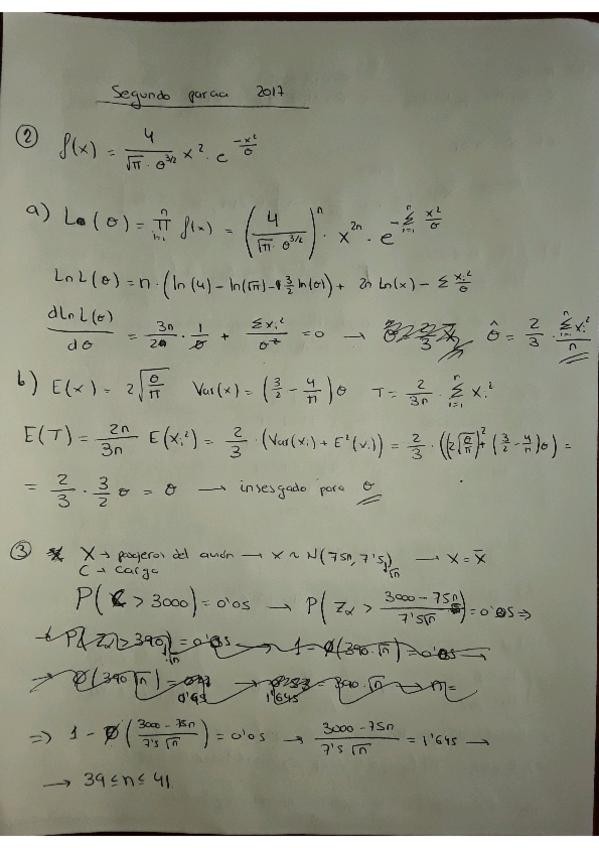 Segundo parcial 2017
② f(x) = 4/(√π · θ^(3/2)) x² · e^(-x²/θ)
a) L(θ) = ∏_{i=1}^{n} f(x) = (4/(√π · θ^(3/2)))^n · x^(2n) · e^(-Σ_{i=1}^{n} x²/θ)
Ln L(θ) = n · (ln(4) - ln(√π) - 3/2 ln(θ)) + 2n Ln(x) - Σ xi²/θ
dLn L(θ)/dθ = 3n/2 · 1/θ + Σxi²/θ² = 0 → θ̂ = 2/3 · Σ_{i=1}^{n} xi²/n
b) E(x) = 2√(θ/π) Var(x) = (3/2 - 4/π)θ T = 2/3n · Σ_{i=1}^{n} xi²
E(T) = 2n/3n E(xi²) = 2/3 · (Var(xi) + E²(xi)) = 2/3 · ((2√(θ/π))² + (3/2 - 4/π)θ) =
= 2/3 · 3/2 θ = θ → insesgado para θ
③ X → pasajeros del avión → x ~ N(75n, 7'5√n) → X = X̄
C → carga
P(C > 3000) = 0'05 → P(Zα > (3000 - 75n)/(7'5√n)) = 0'05 ⇒
⇒ 1 - Ø((3000 - 75n)/(7'5√n)) = 0'05 → (3000 - 75n)/(7'5√n) = 1'645 →
→ 39 ≤ n ≤ 41